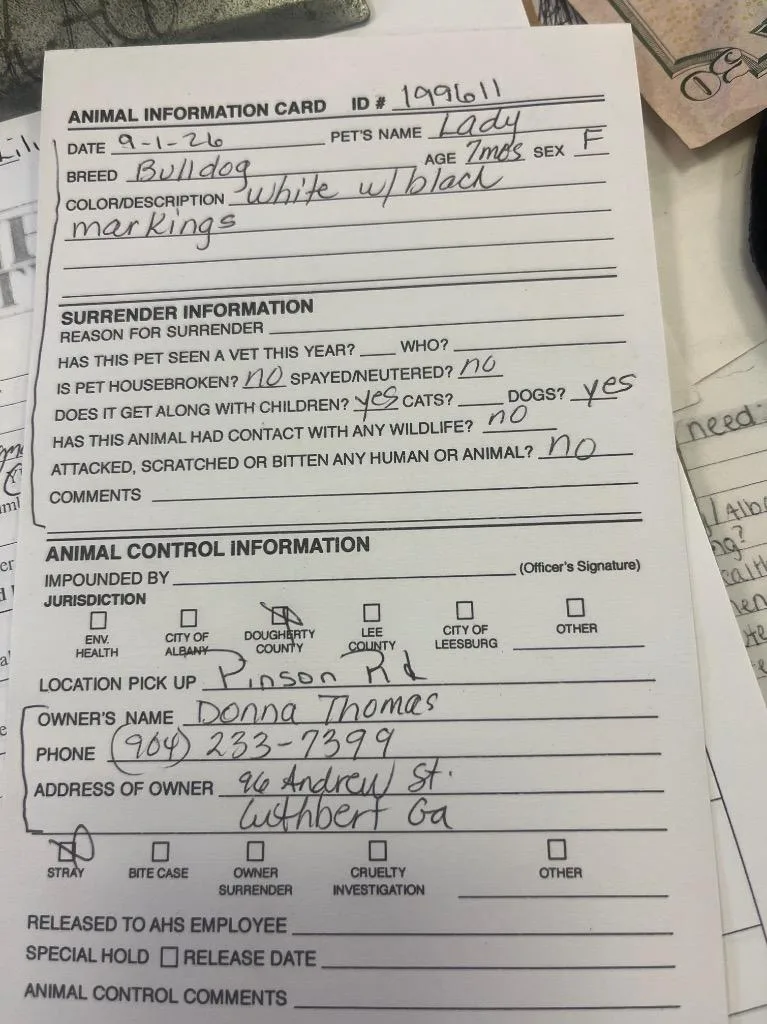 ANIMAL INFORMATION CARD ID # 199611
DATE 9-1-26 PET'S NAME Lady
BREED Bulldog AGE 7mo's SEX F
COLOR/DESCRIPTION white w/ black
markings
SURRENDER INFORMATION
REASON FOR SURRENDER
HAS THIS PET SEEN A VET THIS YEAR? WHO?
IS PET HOUSEBROKEN? no SPAYED/NEUTERED? no
DOES IT GET ALONG WITH CHILDREN? yes CATS? DOGS? yes
HAS THIS ANIMAL HAD CONTACT WITH ANY WILDLIFE? no
ATTACKED, SCRATCHED OR BITTEN ANY HUMAN OR ANIMAL? no
COMMENTS
ANIMAL CONTROL INFORMATION
IMPOUNDED BY (Officer's Signature)
JURISDICTION
ENV. HEALTH CITY OF ALBANY DOUGHERTY COUNTY LEE COUNTY CITY OF LEESBURG OTHER
LOCATION PICK UP Pinson Rd
OWNER'S NAME Donna Thomas
PHONE (904) 233-7399
ADDRESS OF OWNER 96 Andrew St.
Cuthbert Ga
STRAY BITE CASE OWNER SURRENDER CRUELTY INVESTIGATION OTHER
RELEASED TO AHS EMPLOYEE
SPECIAL HOLD RELEASE DATE
ANIMAL CONTROL COMMENTS
need:
50